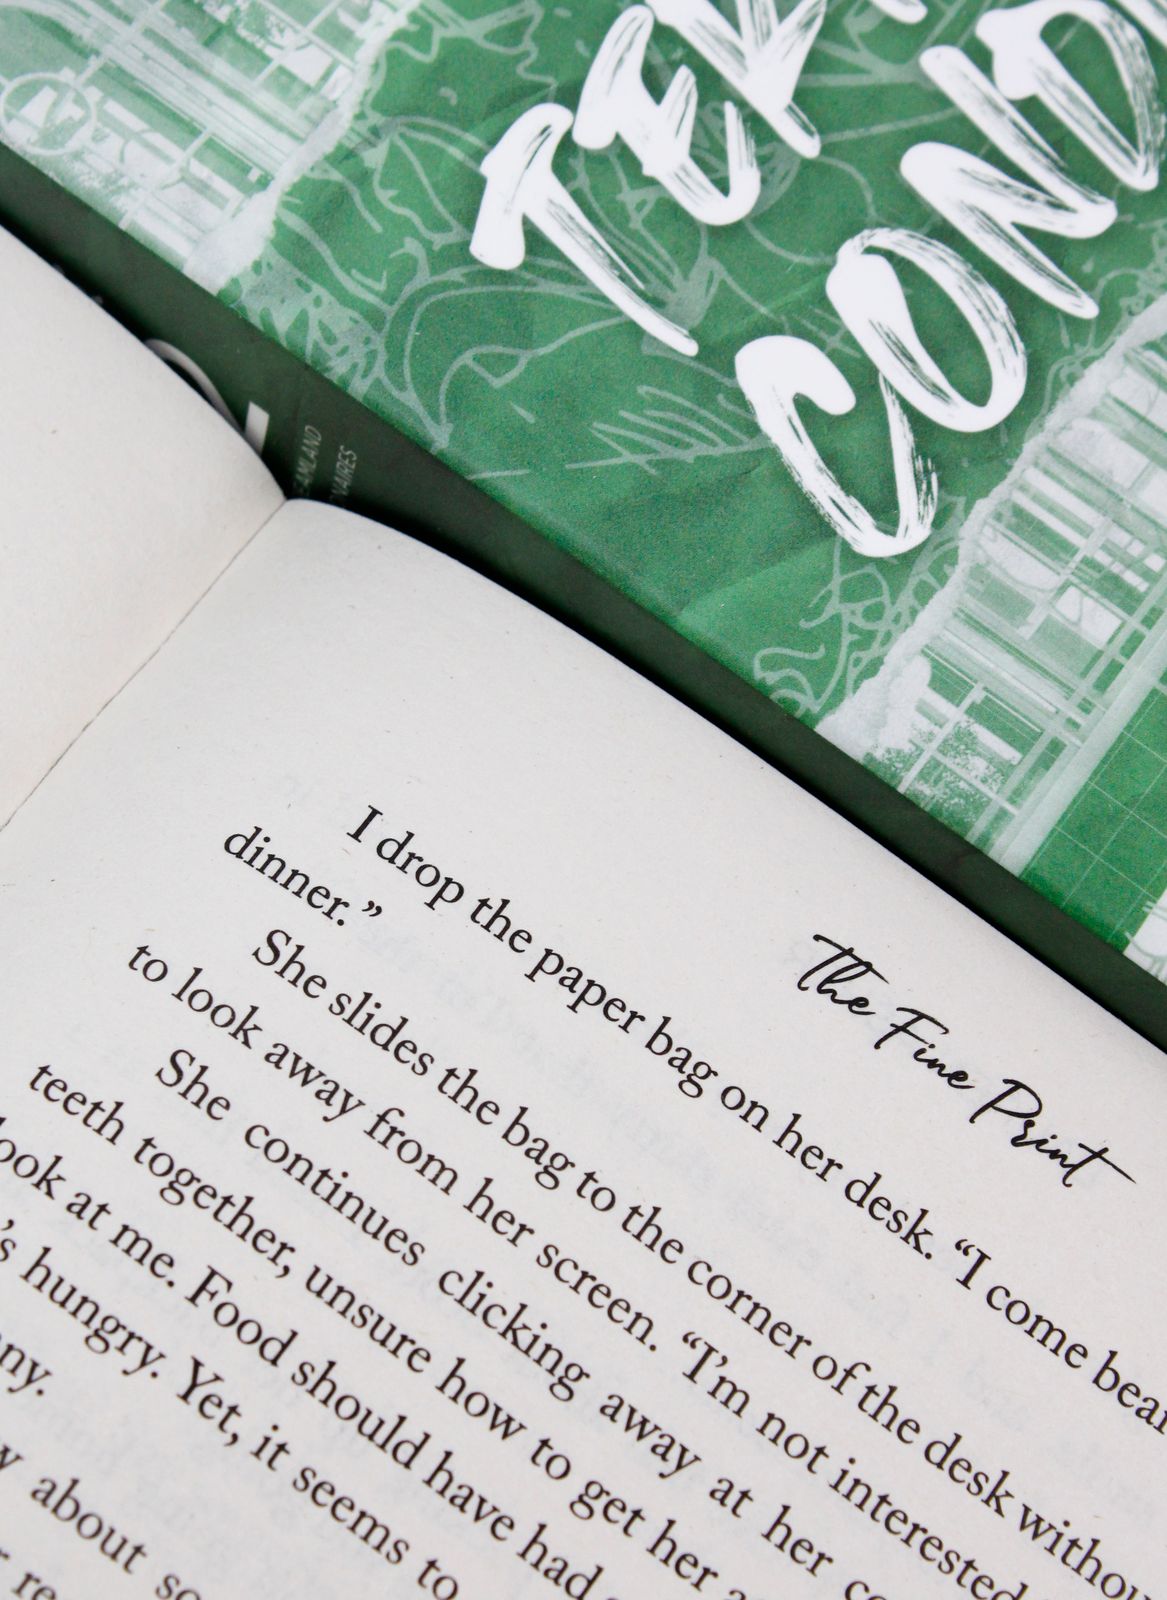 CON
EAMLAND
NAIRES
The Fine Print
I drop the paper bag on her desk. “I come
dinner.”
She slides the bag to the corner of the desk
to look away from her screen. “I’m not interested
She continues clicking away at her
teeth together, unsure how to get her
look at me. Food should have had
’s hungry. Yet, it seems to
about